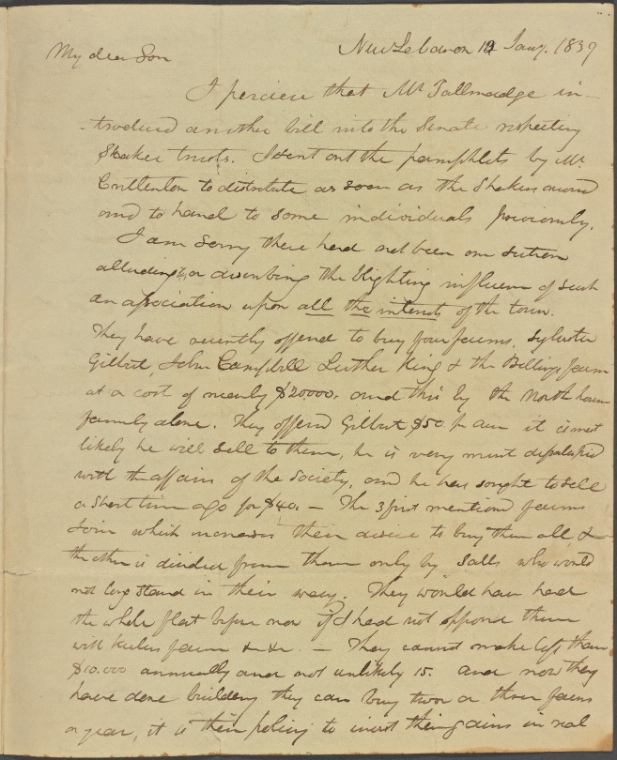 New Lebanon 12 Jany. 1839
My dear Son
I percieve that Mr Tallmadge in-
-troduced another bill into the Senate respecting
Shaker trusts. I sent out the pamphlets by Mr.
Crittenton to distribute as soon as the Shakers moved
and to hand to some individuals previously.
I am sorry there had not been one section
alluding to, or describing the blighting influence of such
an association upon all the interests of the town.
They have recently offered to buy four farms. Sylvester
Gilbert, John Campbell Luther King & the Billings farm
at a cost of nearly $20000. and this by the North house
family alone. They offered Gilbert $50. pr acre it is not
likely he will sell to them, he is very much
with the affairs of the Society, and he has sought to sell
a short time ago for $40. — The 3 first mentioned farms
join which increases their desire to buy them all, &
the other is divided from them only by Salls who would
not long stand in their way. They would have had
the whole flat before now if I had not opposed them
with farm &c &c. — They cannot make less than
$10.000 annually and not unlikely 15. and now they
have done building they can buy two or three farms
a year, it is their policy to invest their gains in real